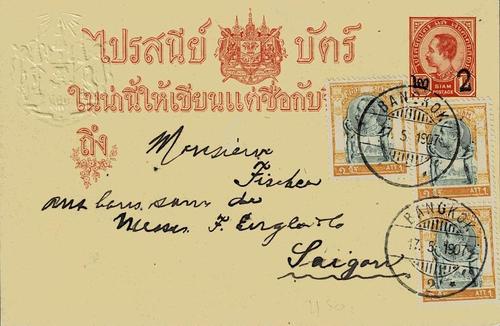 ไปรสนีย์ บัตร์
ในน่านี้ให้เขียนแต่ชื่อกับ
SIAM
POSTAGE
2
ถึง
BANGKOK
17.5.1907
ATT.1
ATT.1
Monsieur
Fischer
aux bons soins de
Messrs F. Engler & Co
Saigon
BANGKOK
17.5.1907
2
ATT.1